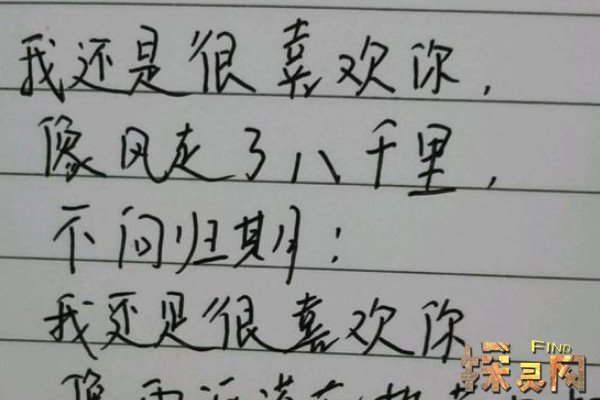 我还是很喜欢你，
像风走了八千里，
不问归期；
我还是很喜欢你
像雨
FIND
探灵网